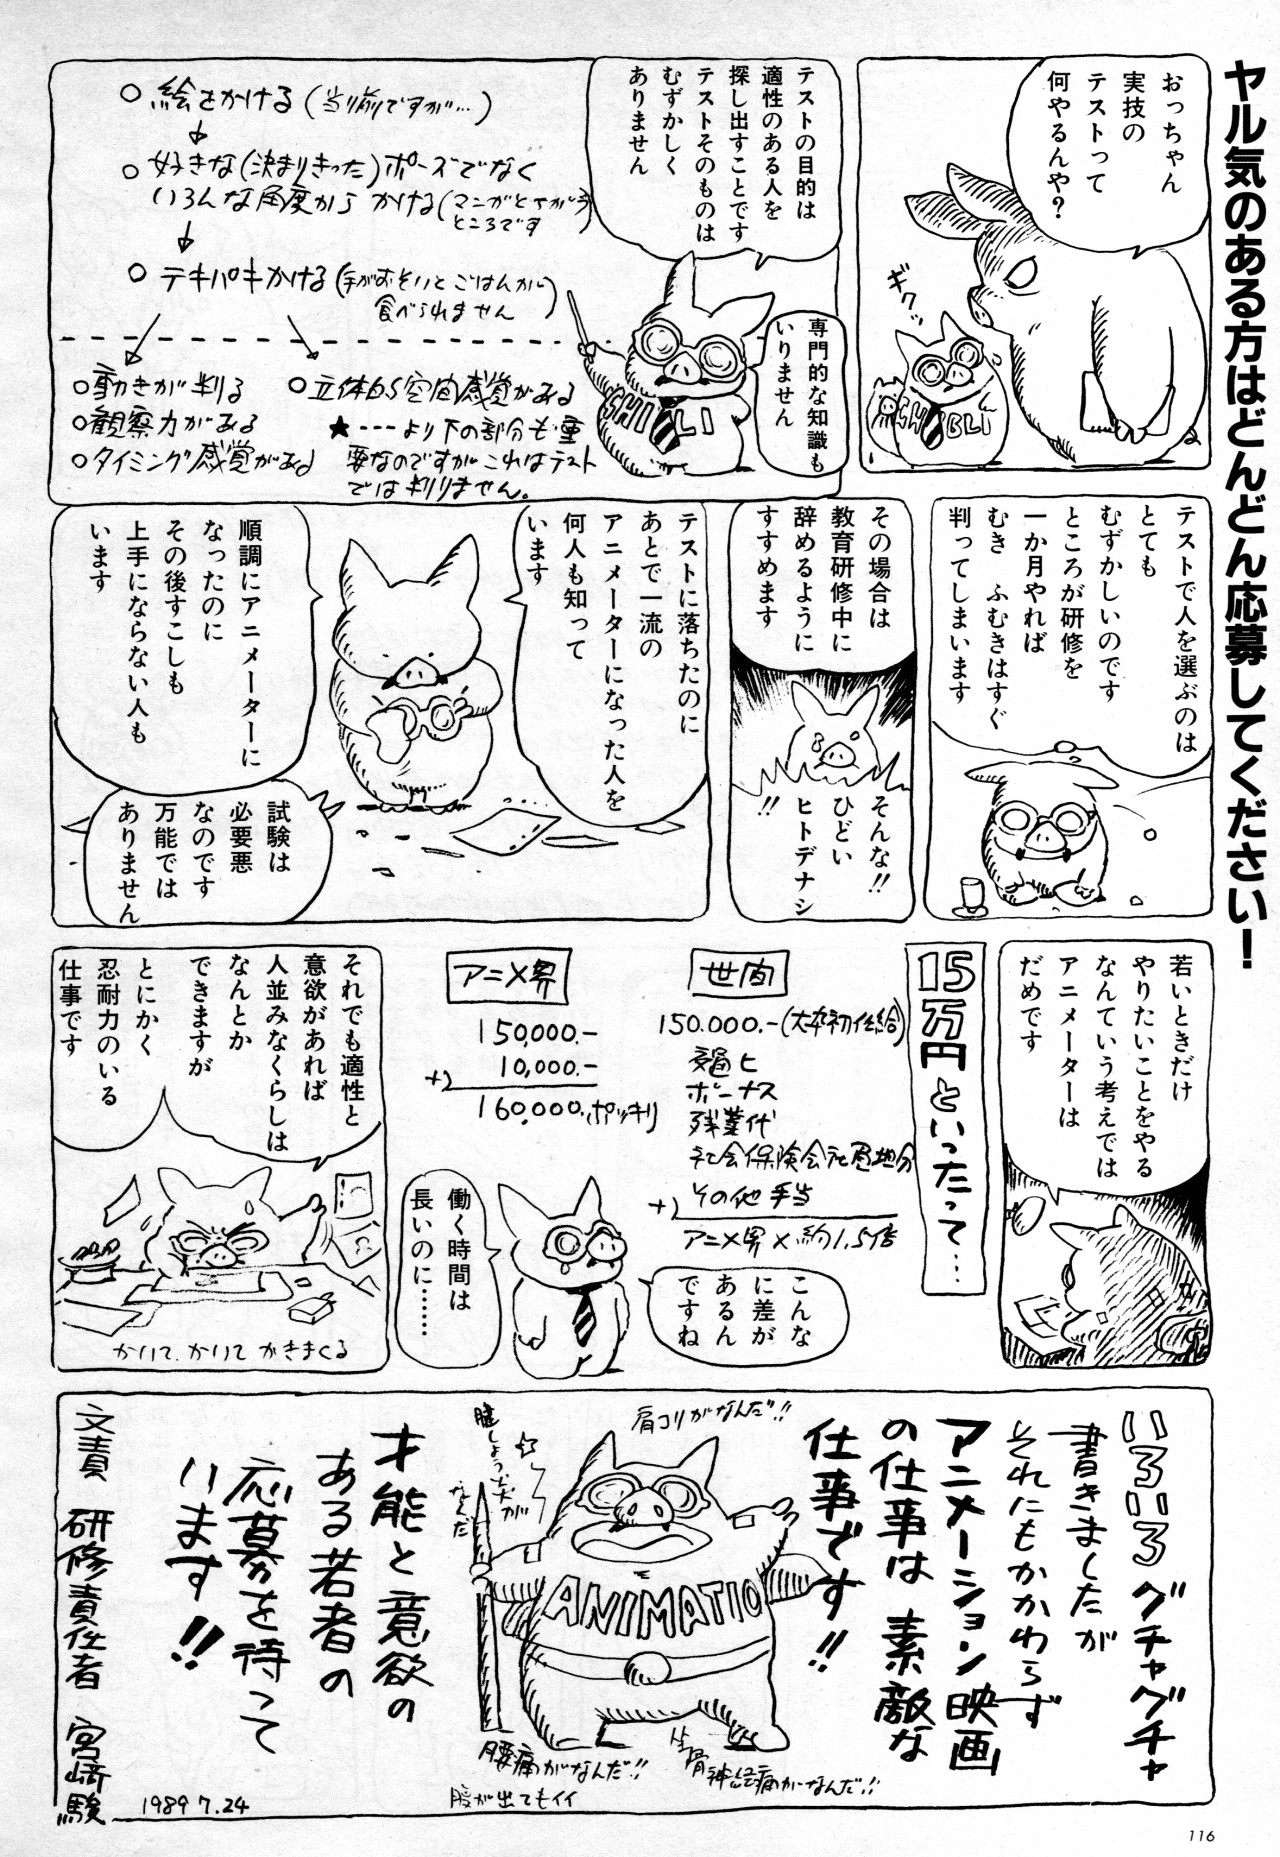 ヤル気のある方はどんどん応募してください!
おっちゃん
実技の
テストって
何やるんや?
ギクッ
テストの目的は
適性のある人を
探し出すことです
テストそのものは
むずかしく
ありません
専門的な知識も
いりません
SHI LI
○絵をかける(当り前ですが…)
○好きな(決まりきった)ポーズでなく
いろんな角度から かける(マニアがとくにヘタな
ところです
○テキパキかける(手がおそいとごはんが
食べられません
○動きが判る
○観察力がある
○タイミング感覚がある
○立体的空間感覚がある
★---より下の部分も重
要なのですがこれはテスト
では判りません。
テストで人を選ぶのは
とても
むずかしいのです
ところが研修を
一か月やれば
むき ふむきはすぐ
判ってしまいます
その場合は
教育研修中に
辞めるように
すすめます
そんな!!
ひどい
ヒトデナシ
!!
テストに落ちたのに
あとで一流の
アニメーターになった人を
何人も知って
います
順調にアニメーターに
なったのに
その後すこしも
上手にならない人も
います
試験は
必要悪
なのです
万能では
ありません
若いときだけ
やりたいことをやる
なんていう考えでは
アニメーターは
だめです
15万円といったって…
世間
150.000.-(大卒初任給)
交通ヒ
ボーナス
残業代
社会保険会社負担分
+) その他手当
アニメ界×約1.5倍
アニメ界
150,000.-
+) 10,000.-
160,000.ポッキリ
こんな
に差が
あるん
ですね
働く時間は
長いのに……
それでも適性と
意欲があれば
人並みなくらしは
なんとか
できますが
とにかく
忍耐力のいる
仕事です
かいて、かいて かきまくる
いろいろグチャグチャ
書きましたが
それにもかかわらず
アニメーション映画
の仕事は素敵な
仕事です!!
肩コリがなんだ!!
腱しょう炎が
なんだ
ANIMATIO
腰痛がなんだ!!
腹が出てもイイ
坐骨神経痛がなんだ!!
才能と意欲の
ある若者の
応募を待って
います!!
文責 研修責任者 宮崎駿
1989 7.24
116